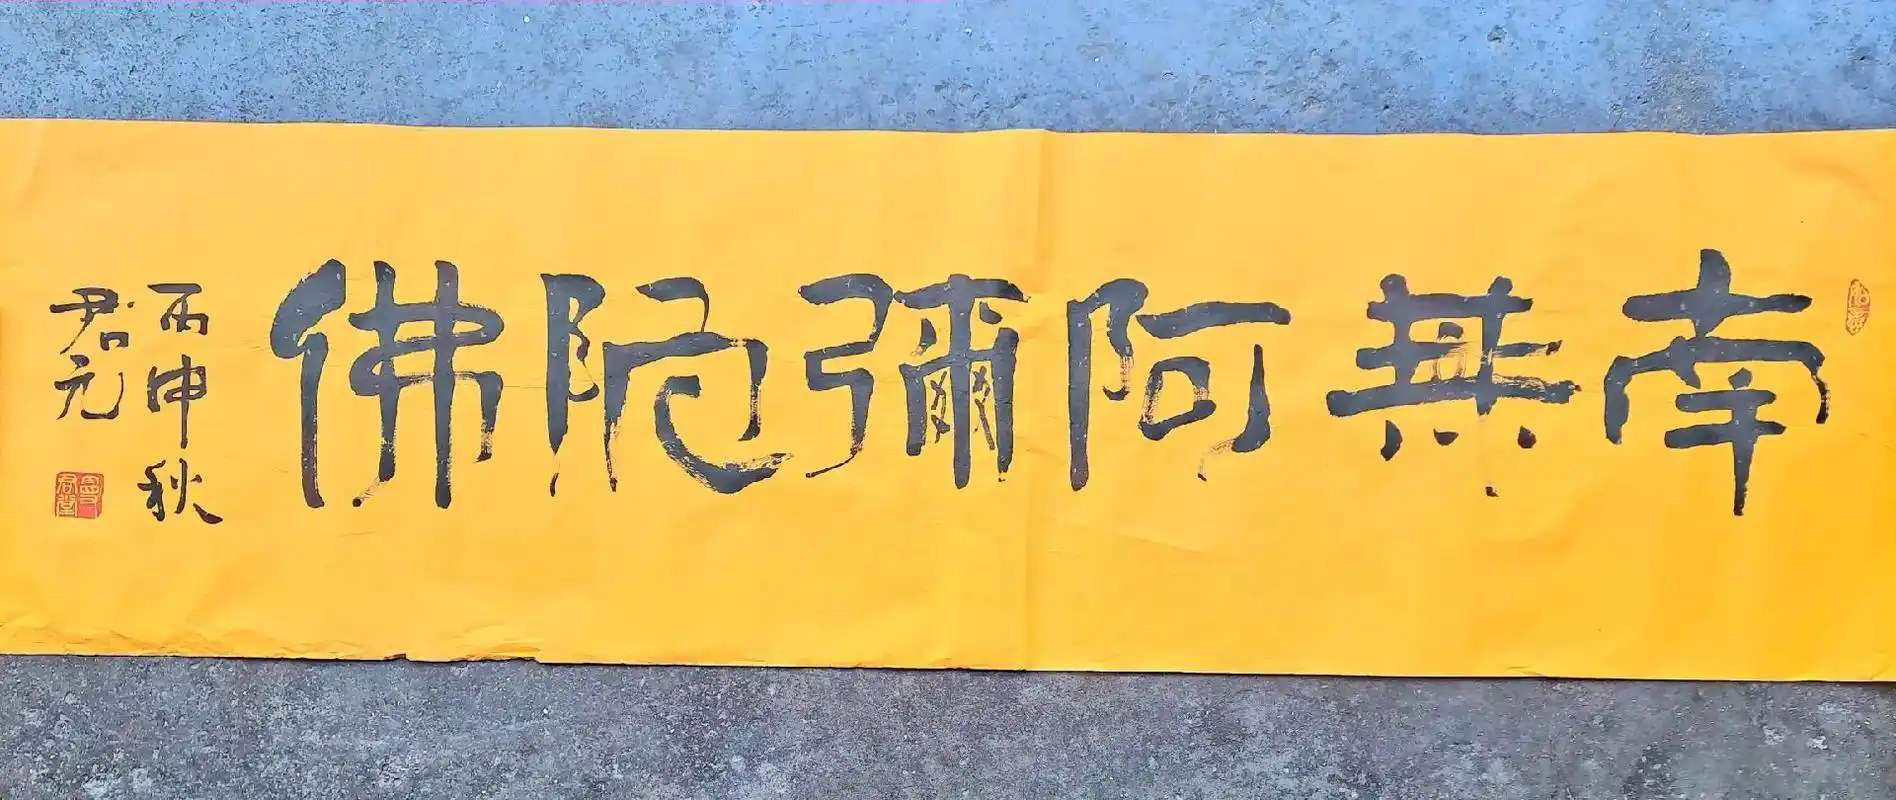 南無阿彌陀佛
丙申秋
君元